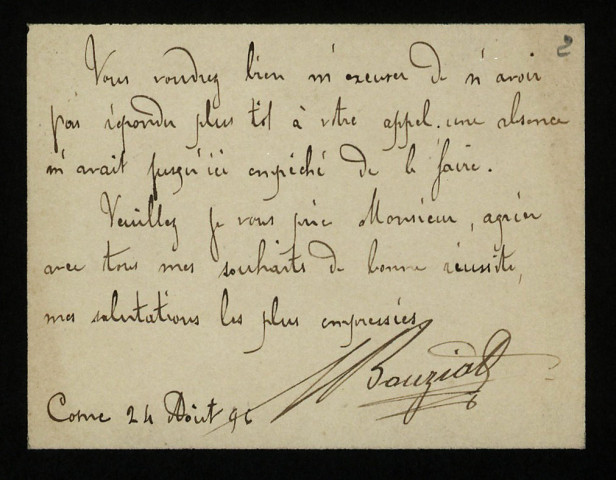 2
Vous voudrez bien m'excuser de n'avoir
pas répondu plus tôt à votre appel. une absence
m'avait jusqu'ici empêché de le faire.
Veuillez je vous prie Monsieur, agréer
avec tous mes souhaits de bonne réussite,
mes salutations les plus empressées
Bouziat
Cosne 24 Août 96